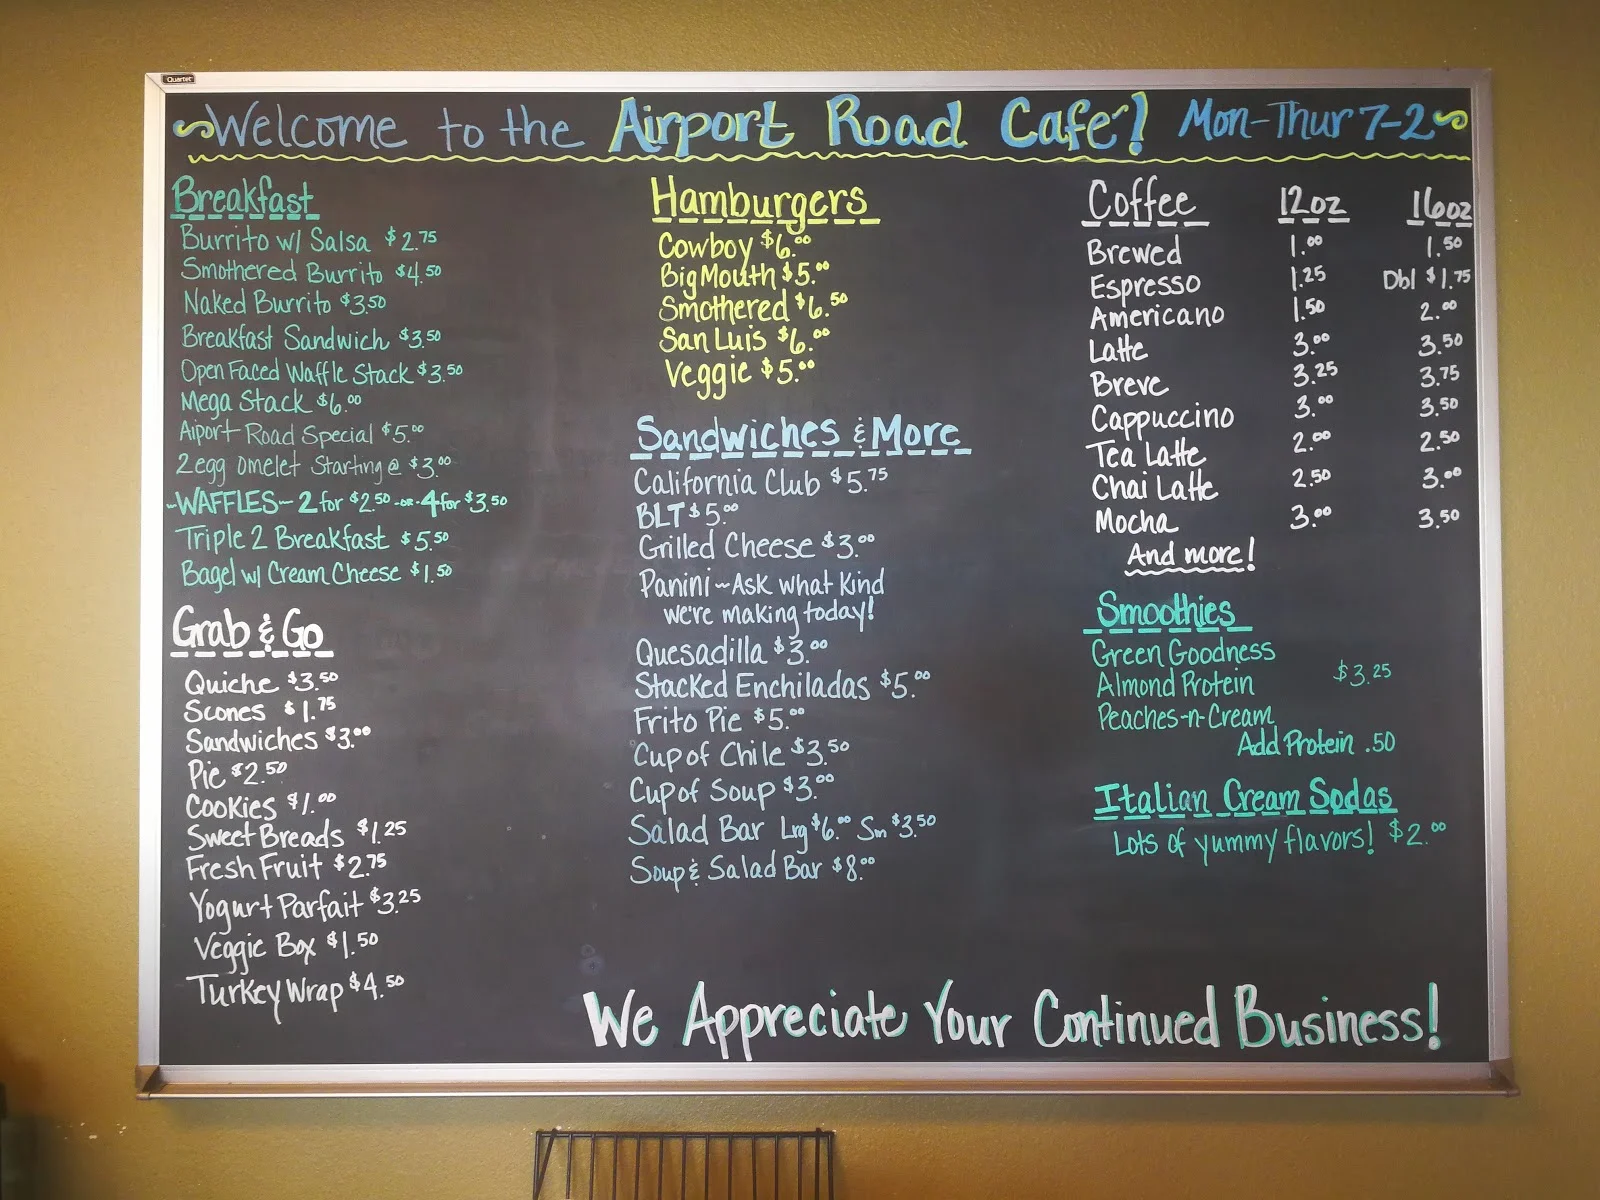 Quartet
Welcome to the Airport Road Cafe! Mon-Thur 7-2
Breakfast
Burrito w/ Salsa $2.75
Smothered Burrito $4.50
Naked Burrito $3.50
Breakfast Sandwich $3.50
Open Faced Waffle Stack $3.50
Mega Stack $6.00
Aiport Road Special $5.00
2 egg omelet Starting @ $3.00
~WAFFLES~ 2 for $2.50 -or- 4 for $3.50
Triple 2 Breakfast $5.50
Bagel w/ Cream Cheese $1.50
Grab & Go
Quiche $3.50
Scones $1.75
Sandwiches $3.00
Pie $2.50
Cookies $1.00
Sweet Breads $1.25
Fresh Fruit $2.75
Yogurt Parfait $3.25
Veggie Box $1.50
Turkey Wrap $4.50
Hamburgers
Cowboy $6.00
Big Mouth $5.00
Smothered $6.50
San Luis $6.00
Veggie $5.00
Sandwiches & More
California Club $5.75
BLT $5.00
Grilled Cheese $3.00
Panini~Ask what kind
we're making today!
Quesadilla $3.00
Stacked Enchiladas $5.00
Frito Pie $5.00
Cup of Chile $3.50
Cup of Soup $3.00
Salad Bar Lrg $6.00 Sm $3.50
Soup & Salad Bar $8.00
Coffee 12oz 16oz
Brewed 1.00 1.50
Espresso 1.25 Dbl $1.75
Americano 1.50 2.00
Latte 3.00 3.50
Breve 3.25 3.75
Cappuccino 3.00 3.50
Tea Latte 2.00 2.50
Chai Latte 2.50 3.00
Mocha 3.00 3.50
And more!
Smoothies
Green Goodness
Almond Protein $3.25
Peaches-n-Cream
Add Protein .50
Italian Cream Sodas
Lots of yummy flavors! $2.00
We Appreciate Your Continued Business!